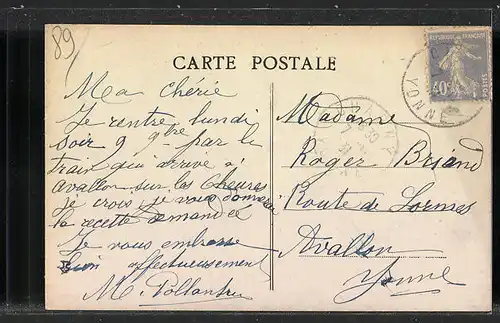 89
CARTE POSTALE
REPUBLIQUE FRANÇAISE
40c
POSTES
YONNE
Ma chérie
Je rentre lundi
soir 9 9bre par le
train qui arrive à
avallon sur les 6 heures
je crois, je vous donnerai
la recette demandée
Je vous embrasse
bien affectueusement
M.
Madame
Roger Briand
Route de Lormes
Avallon
Yonne